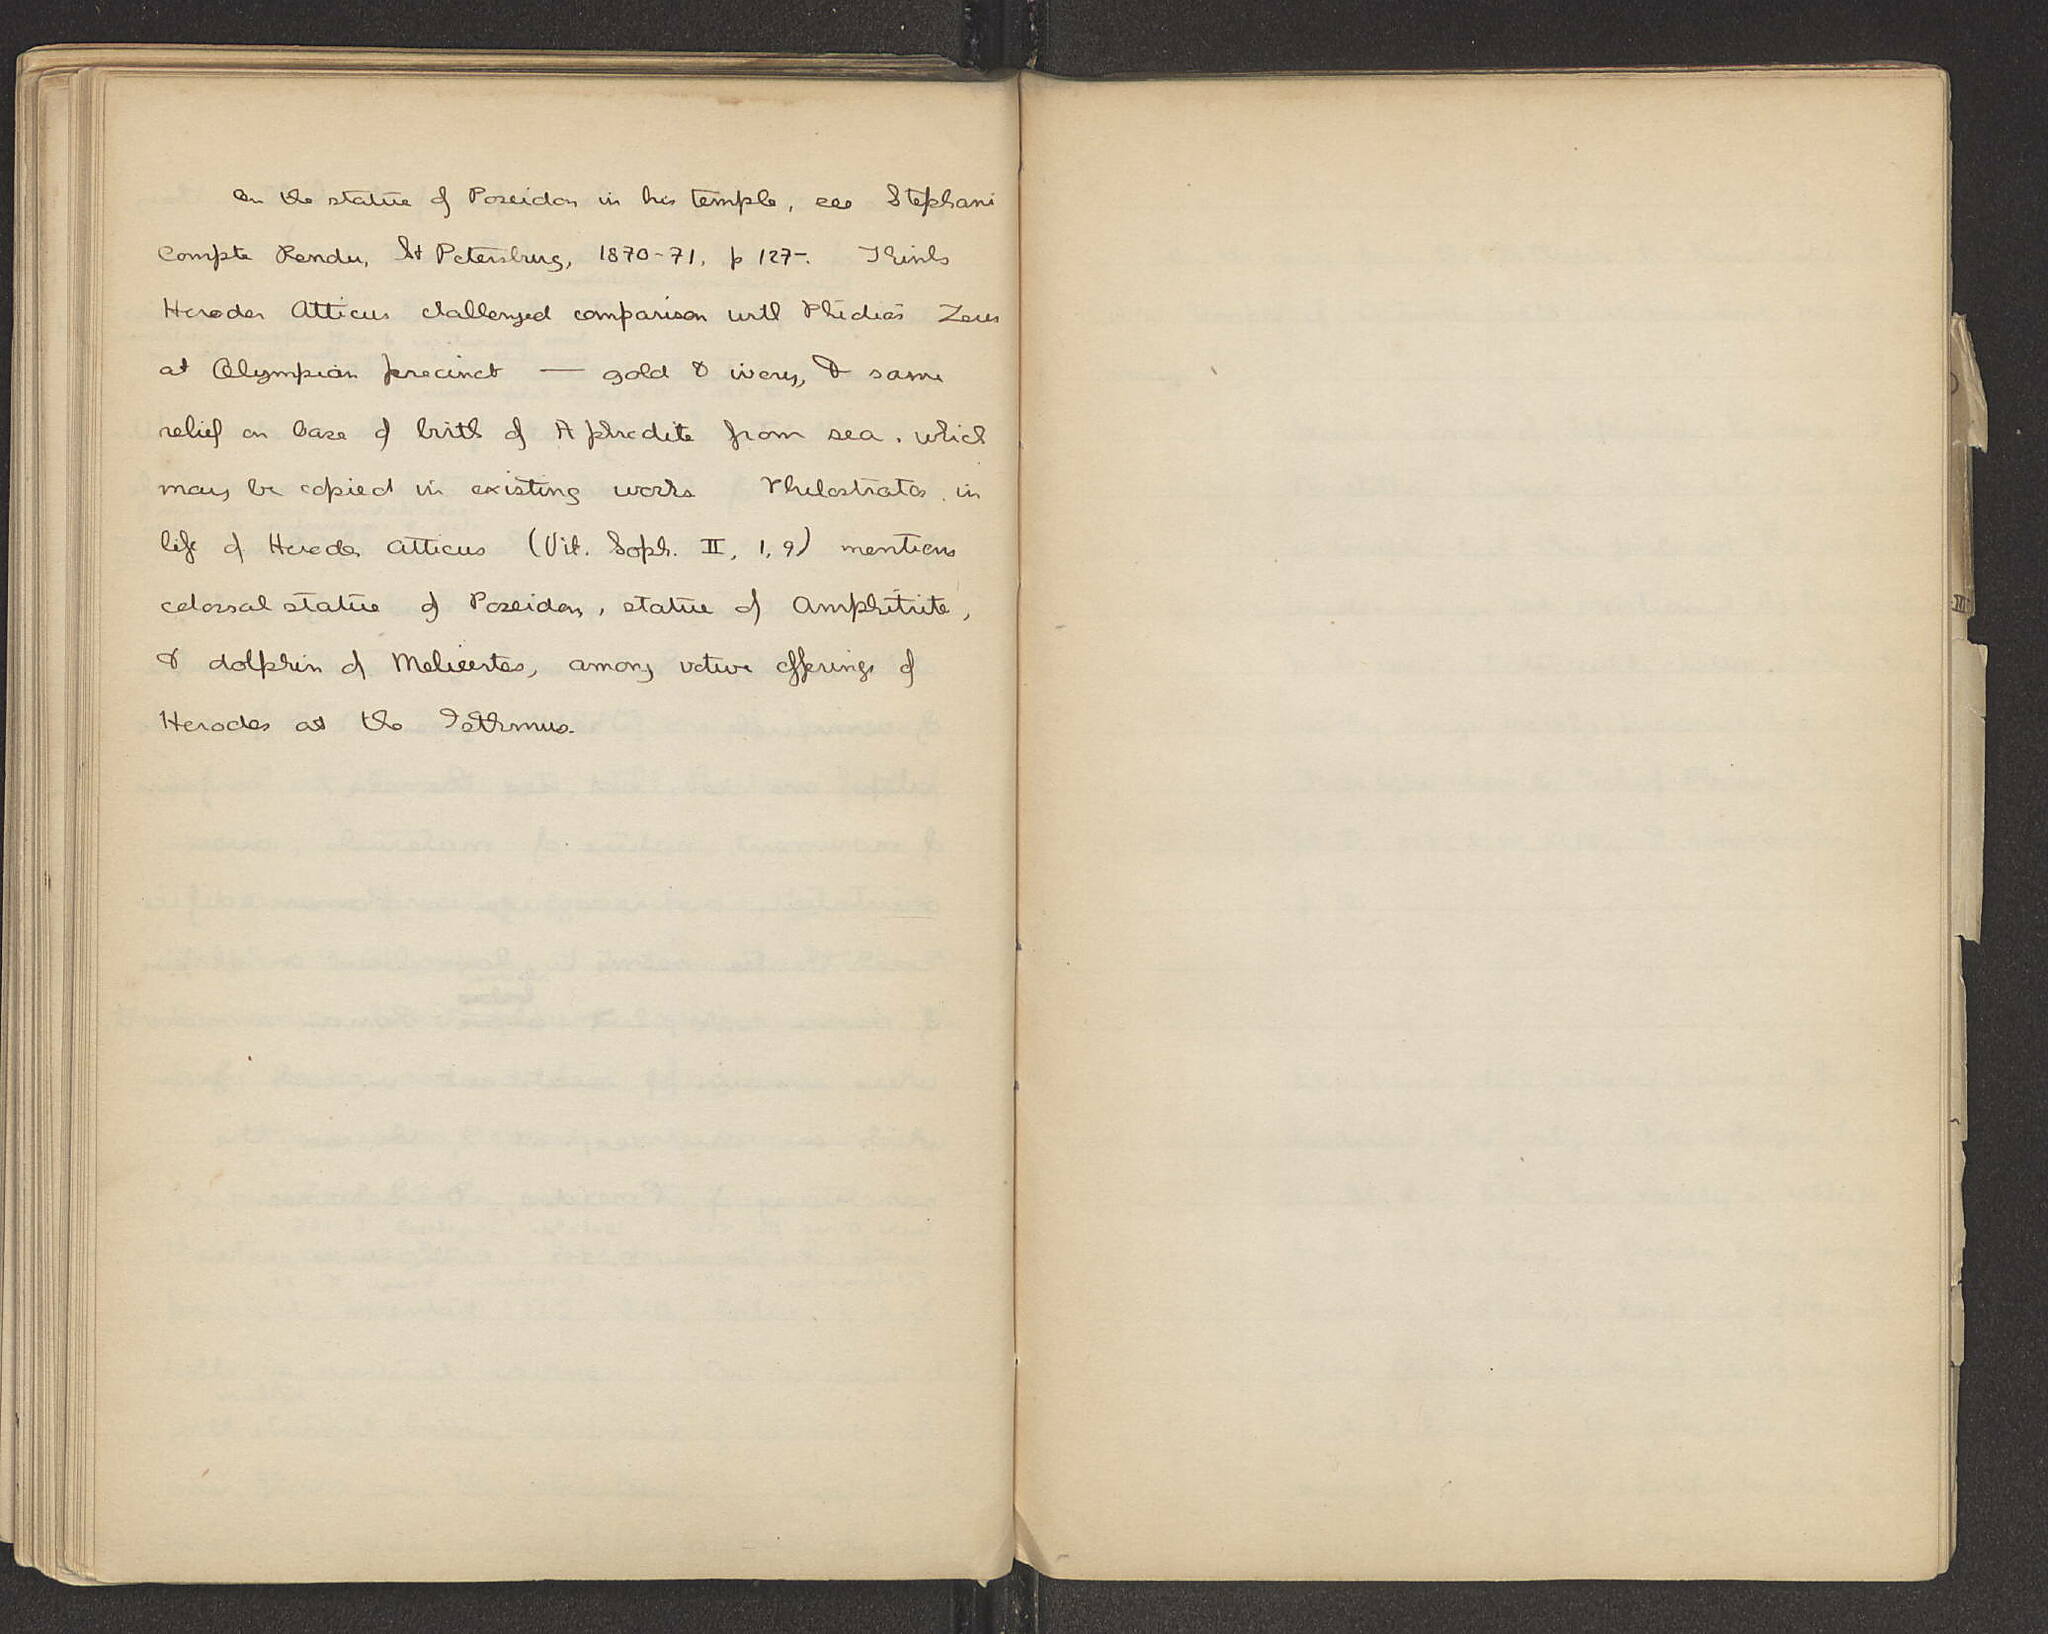 On the statue of Poseidon in his temple, see Stephani
Compte Rendu, St Petersburg, 1870-71, p 127-. Thinks
Herodes Atticus challenged comparison with Phidias' Zeus
at Olympian precinct — gold & ivory, & same
relief on base of birth of Aphrodite from sea, which
may be copied in existing works Philostratos, in
life of Herodes Atticus (Vit. Soph. II, 1, 9) mentions
colossal statue of Poseidon, statue of Amphitrite,
& dolphin of Melicertes, among votive offerings of
Herodes at the Isthmus.